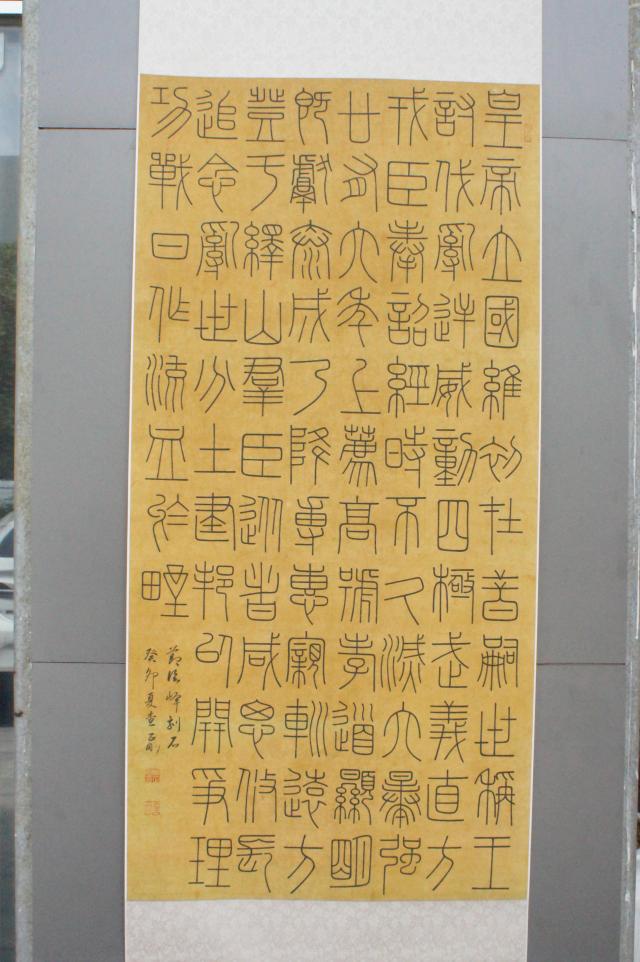 皇帝立國維初在昔嗣世稱王
討伐亂逆威動四極武義直方
戎臣奉詔經時不久滅六暴強
廿有六年上薦高號孝道顯明
既獻泰成乃降專惠親巡遠方
登于繹山羣臣從者咸思攸長
追念亂世分土建邦以開爭理
功戰日作流血於野
節臨嶧刻石
癸卯夏